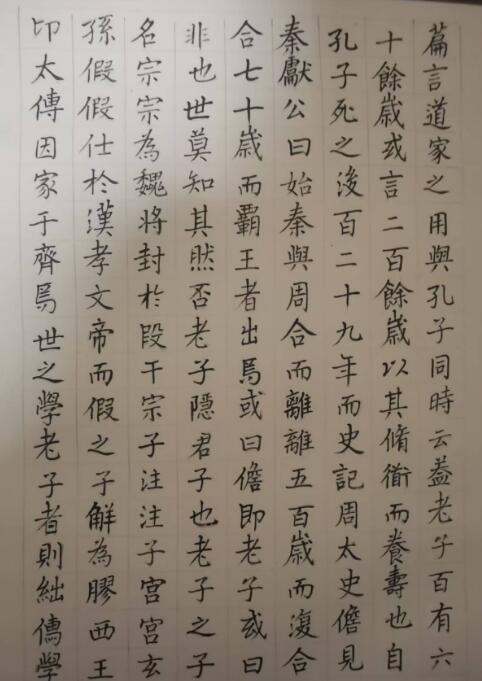 篇言道家之用與孔子同時云葢老子百有六
十餘歲或言二百餘歲以其脩衜而養壽也自
孔子死之後百二十九年而史記周太史儋見
秦獻公曰始秦與周合而離離五百歲而復合
合七十歲而霸王者出焉或曰儋即老子或曰
非也世莫知其然否老子隱君子也老子之子
名宗宗為魏將封於段干宗子注注子宮宮玄
孫假假仕於漢孝文帝而假之子解為膠西王
卬太傅因家于齊焉世之學老子者則絀儒學